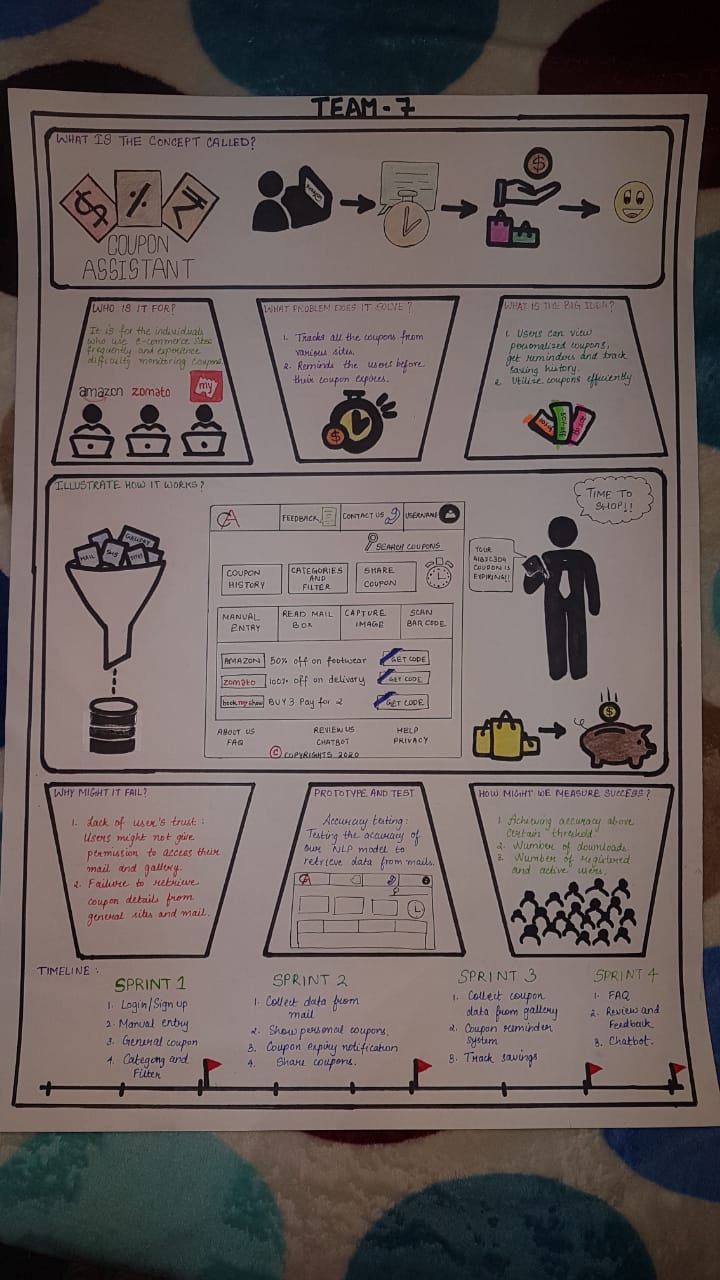 TEAM - 7
WHAT IS THE CONCEPT CALLED?
$ % ₹
COUPON
ASSISTANT
$
WHO IS IT FOR?
It is for the individuals
who use e-commerce sites
frequently and experience
difficulty monitoring coupons
amazon zomato my
WHAT PROBLEM DOES IT SOLVE?
1. Tracks all the coupons from
various sites.
2. Reminds the users before
their coupon expires.
$
WHAT IS THE BIG IDEA?
1. Users can view
personalized coupons,
get reminders and track
saving history.
2. Utilize coupons efficiently
ILLUSTRATE HOW IT WORKS?
GALLERY
MAIL SMS
CA FEEDBACK CONTACT US USERNAME
SEARCH COUPONS
COUPON
HISTORY
CATEGORIES
AND
FILTER
SHARE
COUPON
MANUAL
ENTRY
READ MAIL
BOX
CAPTURE
IMAGE
SCAN
BAR CODE
AMAZON 50% off on footwear GET CODE
zomato 100% off on delivery GET CODE
book my show BUY 3 Pay for 2 GET CODE
ABOUT US REVIEW US HELP
FAQ CHATBOT PRIVACY
© COPYRIGHTS 2020
TIME TO
SHOP!!
YOUR
A1B2C3D4
COUPON IS
EXPIRING!!
$
WHY MIGHT IT FAIL?
1. Lack of user's trust:
Users might not give
permission to access their
mail and gallery.
2. Failure to retrieve
coupon details from
general sites and mail.
PROTOTYPE AND TEST
Accuracy testing:
Testing the accuracy of
our NLP model to
retrieve data from mails.
HOW MIGHT WE MEASURE SUCCESS?
1. Achieving accuracy above
certain threshold.
2. Number of downloads.
3. Number of registered
and active users.
TIMELINE:
SPRINT 1
1. Login/Sign up
2. Manual entry
3. General coupon
4. Category and
Filter
SPRINT 2
1. Collect data from
mail
2. Show personal coupons.
3. Coupon expiry notification
4. Share coupons.
SPRINT 3
1. Collect coupon
data from gallery
2. Coupon reminder
system
3. Track savings
SPRINT 4
1. FAQ
2. Review and
Feedback
3. Chatbot.